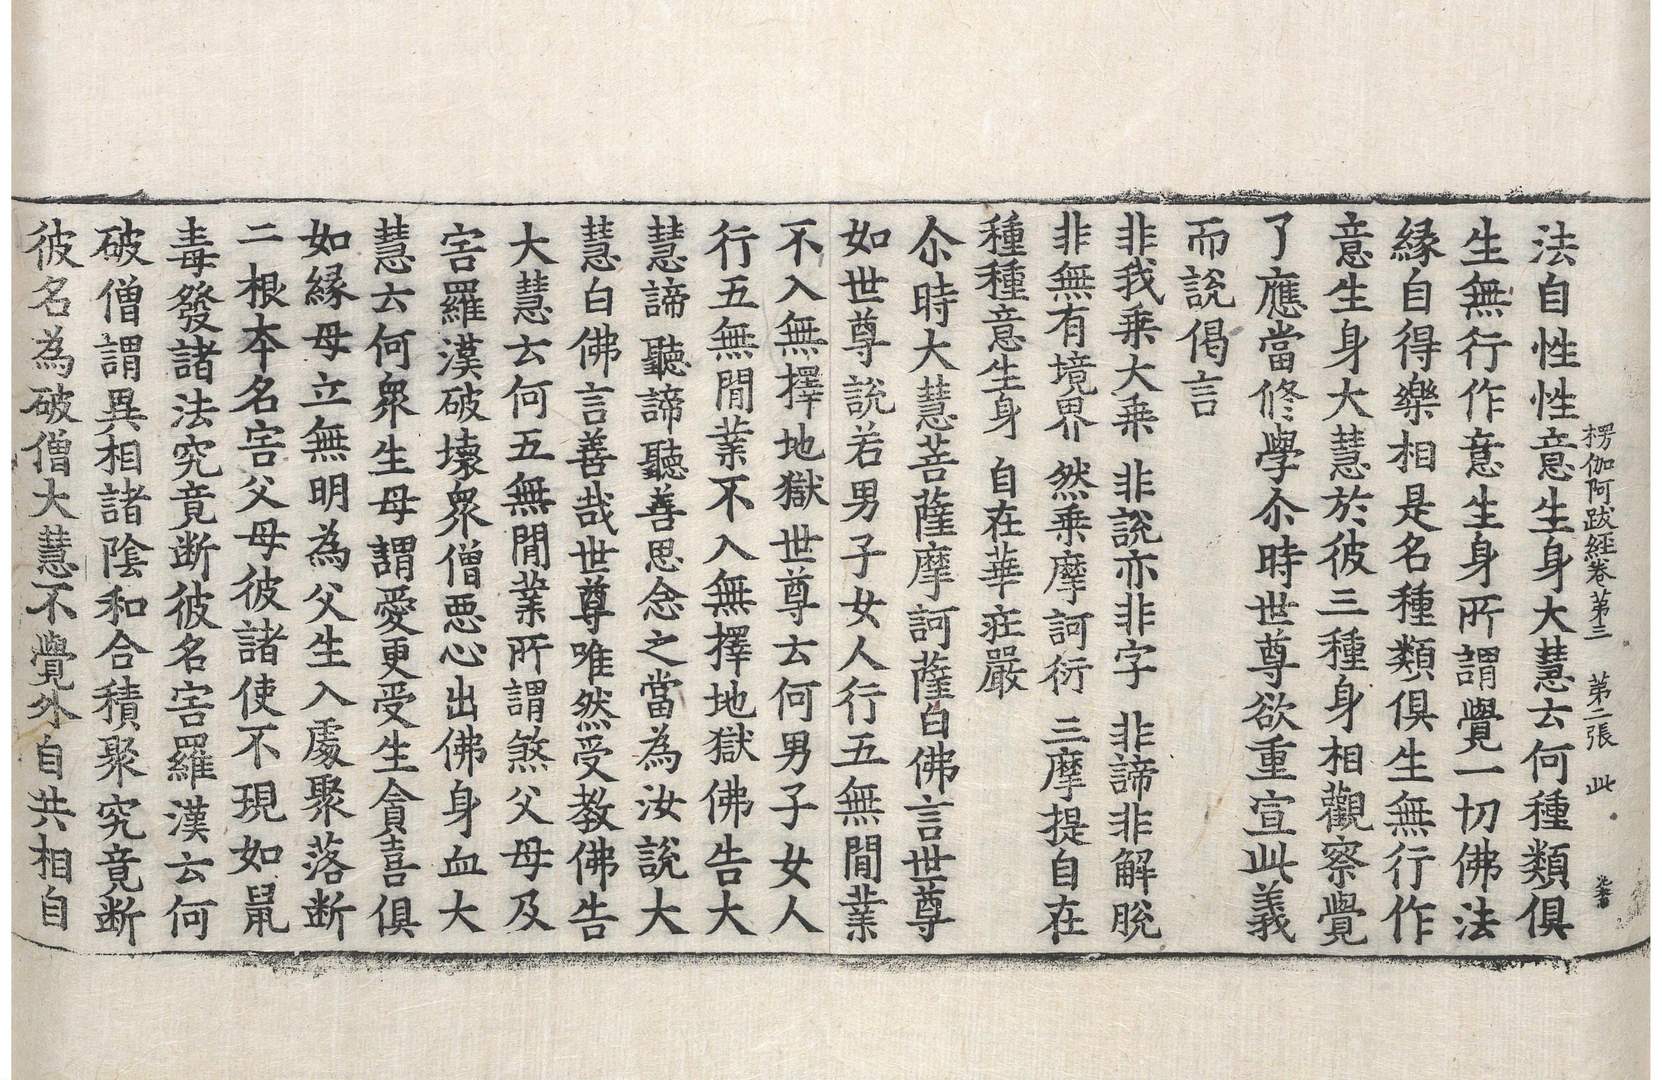 楞伽阿跋經卷第三 第二張 此
法自性性意生身大慧云何種類俱
生無行作意生身所謂覺一切佛法
緣自得樂相是名種類俱生無行作
意生身大慧於彼三種身相觀察覺
了應當修學尒時世尊欲重宣此義
而說偈言
非我乘大乘 非說亦非字 非諦非解脫
非無有境界 然乘摩訶衍 三摩提自在
種種意生身 自在華莊嚴
尒時大慧菩薩摩訶薩白佛言世尊
如世尊說若男子女人行五無間業
不入無擇地獄世尊云何男子女人
行五無間業不入無擇地獄佛告大
慧諦聽諦聽善思念之當為汝說大
慧白佛言善哉世尊唯然受教佛告
大慧云何五無間業所謂煞父母及
害羅漢破壞衆僧惡心出佛身血大
慧云何衆生母謂愛更受生貪喜俱
如緣母立無明為父生入處聚落斷
二根本名害父母彼諸使不現如鼠
毒發諸法究竟斷彼名害羅漢云何
破僧謂異相諸陰和合積聚究竟斷
彼名為破僧大慧不覺外自共相自